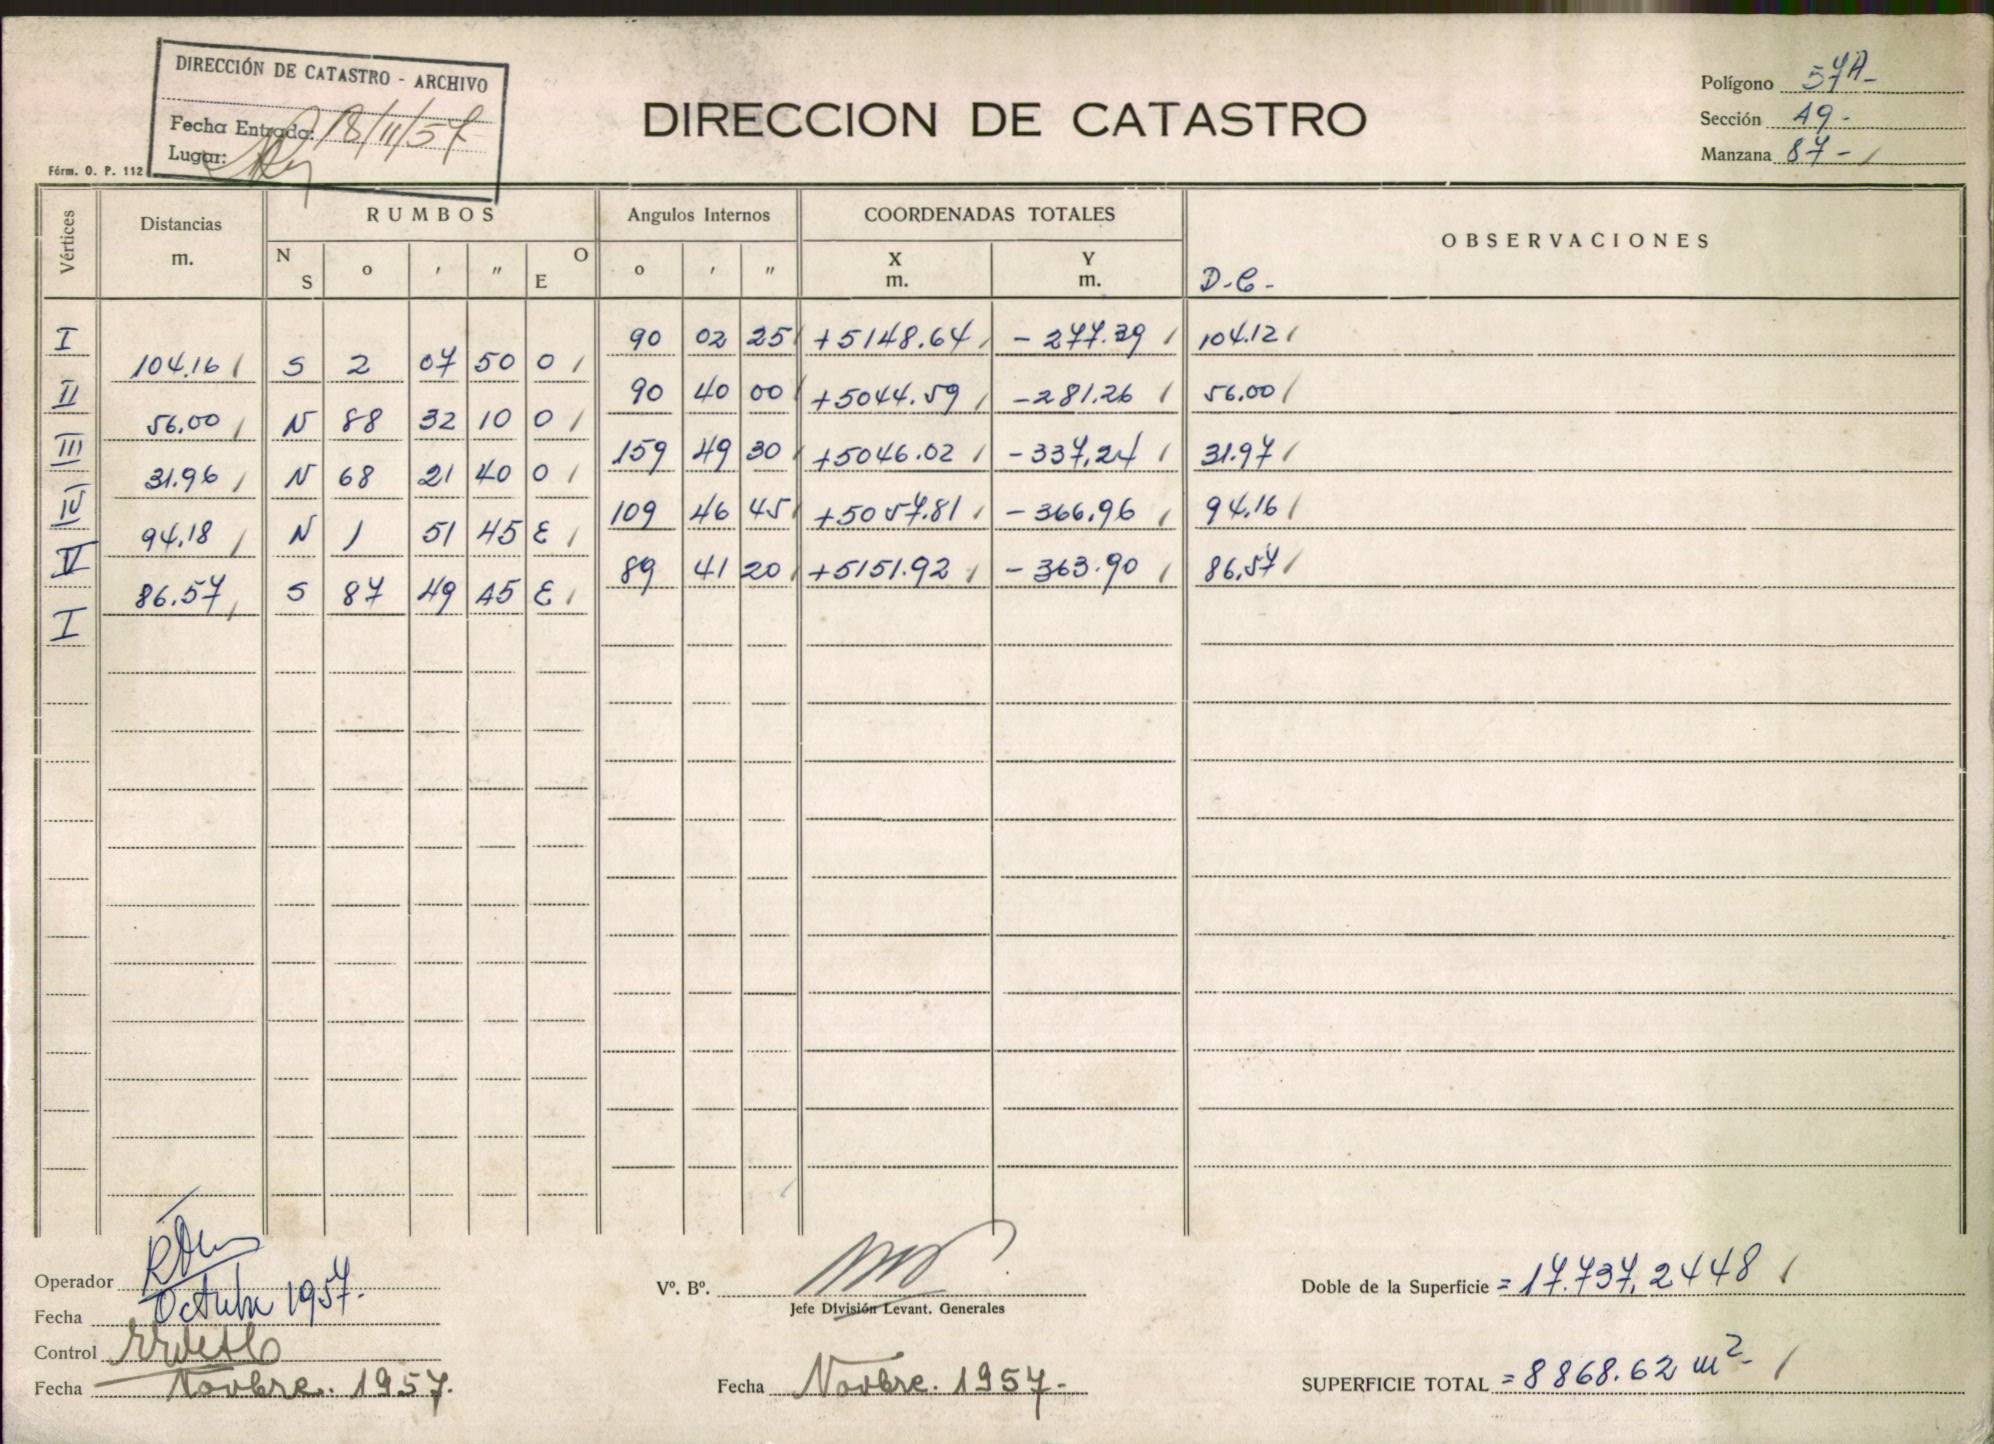 DIRECCIÓN DE CATASTRO - ARCHIVO
Fecha Entrada: 18/11/57
Lugar:
Fórm. O. P. 112
DIRECCION DE CATASTRO
Polígono 57A-
Sección 49-
Manzana 87-
Vértices
Distancias m.
RUMBOS
N S ° ' " O E
Angulos Internos
° ' "
COORDENADAS TOTALES
X m. Y m.
OBSERVACIONES
D.C.-
I 90 02 25 +5148.64 -277.39 104.12
104.16 S 2 07 50 O
II 90 40 00 +5044.59 -281.26 56.00
56.00 N 88 32 10 O
III 159 49 30 +5046.02 -337.24 31.97
31.96 N 68 21 40 O
IV 109 46 45 +5057.81 -366.96 94.16
94.18 N 1 51 45 E
V 89 41 20 +5151.92 -363.90 86.57
86.57 S 87 49 45 E
I
Operador
Fecha Octubre 1957.
Control
Fecha Novbre. 1957.
Vº. Bº.
Jefe División Levant. Generales
Fecha Novbre. 1957-
Doble de la Superficie = 17.737,2448
SUPERFICIE TOTAL = 8868.62 m²-